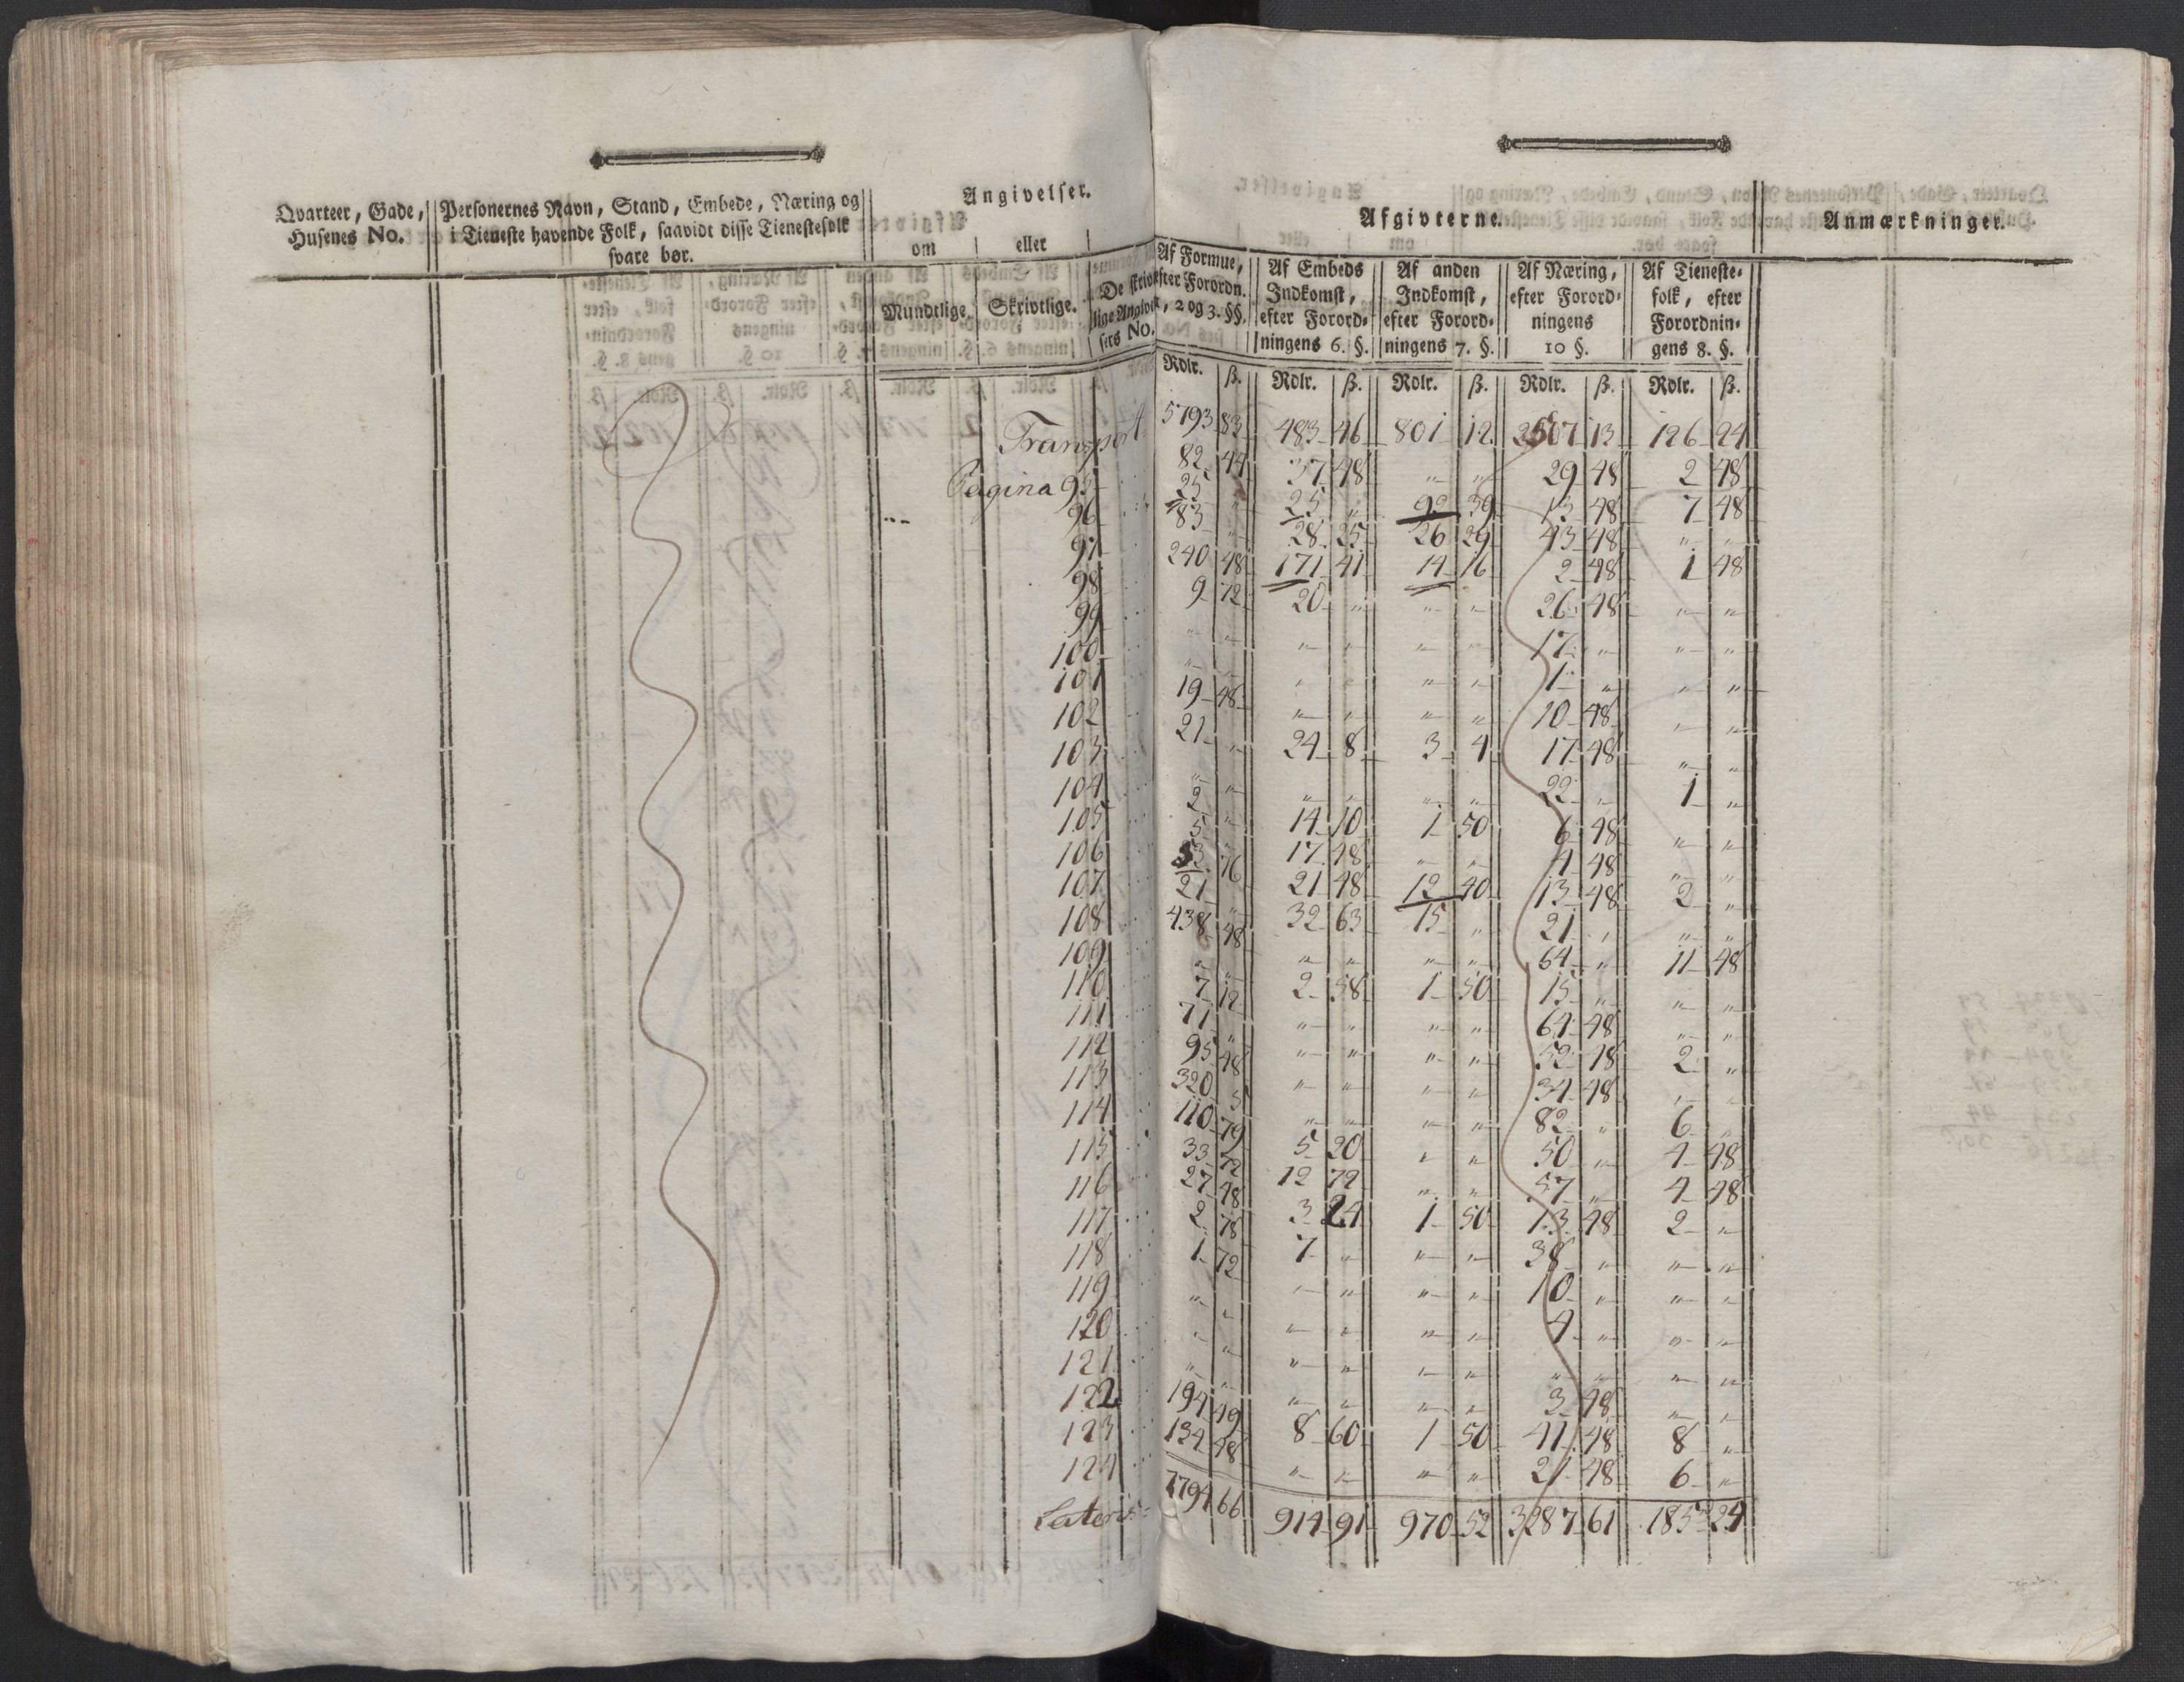 Angivelser.
Qvarteer, Gade, Husenes No.
Personernes Navn, Stand, Embede, Næring og i Tieneste havende Folk, saavidt disse Tienestefolk svare bør.
om eller
Mundtlige. Skrivtlige.
De skrivtlige Angivelsers No.
Afgivterne.
Anmærkninger.
Af Formue, efter Forordn. 2 og 3. §§.
Af Embeds Indkomst, efter Forordningens 6. §.
Af anden Indkomst, efter Forordningens 7. §.
Af Næring, efter Forordningens 10 §.
Af Tienestefolk, efter Forordningens 8. §.
Rdlr. ß. Rdlr. ß. Rdlr. ß. Rdlr. ß. Rdlr. ß.
Transport 5793 83 483 46 801 12 2507 13 126 24
Pagina 95 82 44 37 48 " " 29 48 2 48
96 25 " 25 " 92 39 13 48 7 48
97 83 " 28 25 26 29 43 48 " "
98 240 48 171 41 14 16 2 48 1 48
99 9 72 20 " " " 26 48 " "
100 " " " " " " 17 " " "
101 " " " " " " 1 " " "
102 19 48 " " " " 10 48 " "
103 21 " 24 8 3 4 17 48 " "
104 " " " " " " 22 " 1 "
105 2 " 14 10 1 50 6 48 " "
106 5 " 17 48 " " 4 48 " "
107 53 76 21 48 12 40 13 48 2 "
108 21 " 32 63 15 " 21 " " "
109 438 48 " " " " 64 " 11 48
110 " " 2 58 1 50 15 " " "
111 7 12 " " " " 64 48 " "
112 71 " " " " " 52 48 2 "
113 95 48 " " " " 34 48 " "
114 320 5 " " " " 82 " 6 "
115 110 79 5 20 " " 50 " 4 48
116 33 72 12 72 " " 57 " 4 48
117 27 48 3 24 1 50 13 48 2 "
118 2 78 7 " " " 38 " " "
119 1 72 " " " " 10 " " "
120 " " " " " " 4 " " "
121 " " " " " " " " " "
122 " " " " " " 3 48 " "
123 194 49 8 60 1 50 41 48 8 "
124 134 48 " " " " 21 48 6 "
Lateris 7794 66 914 91 970 52 3287 61 185 24